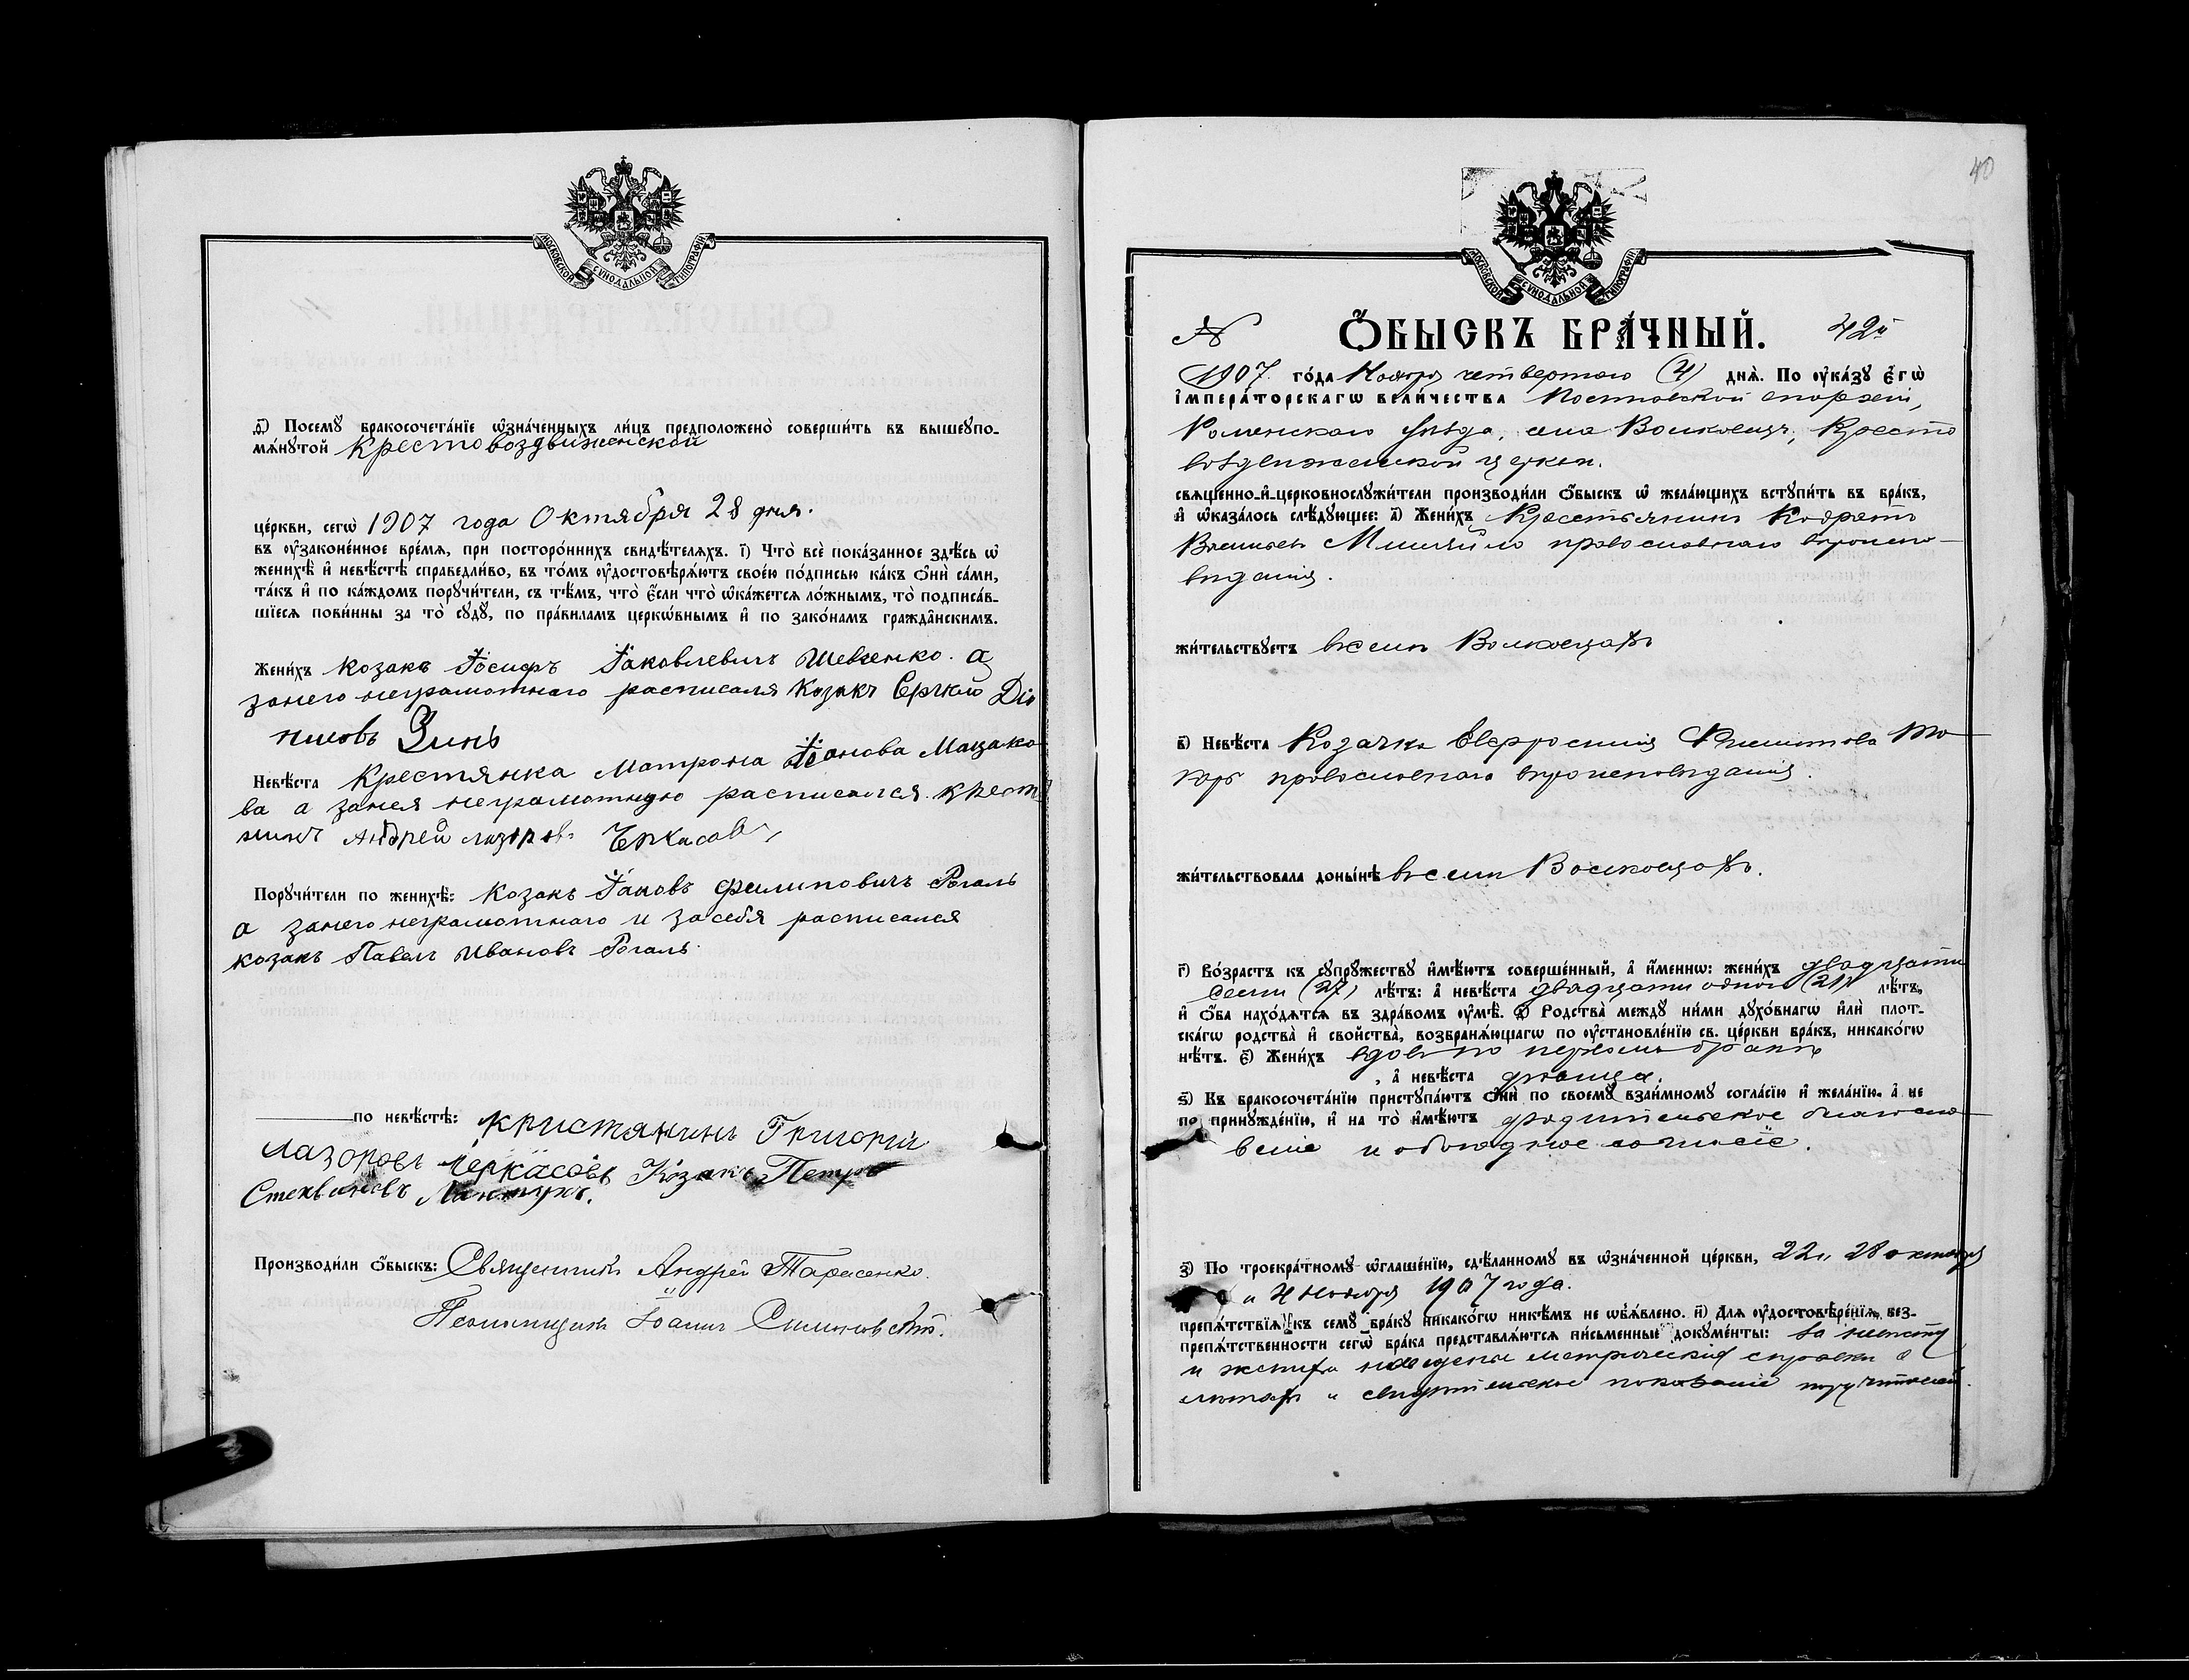 МОСКОВСКОЙ СѴНОДАЛЬНОЙ ТИПОГРАФІИ
д҃) Посемꙋ̀ бракосочета́нїе ѡ҆зна́ченныхъ ли́цъ предположено̀ соверши́ть въ вышеꙋпо-
мѧ́нꙋтой Крестовоздвиженской
це́ркви, сегѡ̀ 1907 года Октября 28 дня.
въ ᲂу҆законе́нное вре́мѧ, при посторо́ннихъ свидѣ́телѧхъ. і҃) Что̀ всѐ пока́занное здѣ́сь ѡ҆
женихѣ̀ и҆ невѣ́стѣ справедли́во, въ то́мъ ᲂу҆достовѣрѧ́ютъ свое́ю по́дписью ка́къ ѻ҆нѝ са́ми,
та́къ и҆ по ка́ждомъ порꙋчи́тели, съ тѣ́мъ, что̀ є҆́сли что̀ ѡ҆ка́жетсѧ ло́жнымъ, то̀ подписа́в-
шїесѧ пови́нны за то̀ сꙋдꙋ̀, по пра́виламъ церкѡ́внымъ и҆ по зако́намъ гражда̑нскимъ.
Жени́хъ Козакъ Іосифъ Іаковлевичъ Шевченко. а
занего неграмотнаго расписался Козакъ Зинь
Невѣ́ста Крестянка Матрона Мацако
ва а занея неграмотную расписался крест
Андрей Лазоров Черкасовъ
Порꙋчи́тели по женихѣ̀: Козакъ Іаковъ Филиповичъ Рогаль
а занего неграмотнаго и засебя расписался
козакъ Павелъ Ивановъ Рогаль
по невѣ́стѣ: Кристянинъ Григорій
Лазоровъ Черкасовъ Козакъ Петръ
Производи́ли ѻ҆́быскъ: Священникъ Андрей Тарасенко.
Псаломщикъ Іоаннъ
40
МОСКОВСКОЙ СѴНОДАЛЬНОЙ ТИПОГРАФІИ
№ Ѻ҆́БЫСКЪ БРА́ЧНЫЙ. 42й
1907 го́да Ноября четвертаго (4) днѧ̀. По ᲂу҆ка́зꙋ є҆гѡ̀
і҆мпера́торскагѡ вели́чества Полтавской епархіи,
Роменскаго уѣзда, села Волковецъ, Кресто
воздвиженской церкви.
свѧще́нно-и҆-церковнослꙋжи́тели производи́ли ѻ҆́быскъ ѡ҆ жела́ющихъ встꙋпи́ть въ бра́къ,
и҆ ѡ҆каза́лось слѣ́дꙋющее: а҃) Жени́хъ Крестьянинъ Кодратъ
православнаго вѣроиспо-
вѣданія.
жи́тельствꙋетъ въ селѣ Волковцахъ
в҃) Невѣ́ста Козачка Евфросинія
православнаго вѣроисповѣданія.
жи́тельствовала доны́нѣ въ селѣ Волковцахъ.
г҃) Во́зрастъ къ сꙋпрꙋ́жествꙋ и҆мѣ́ютъ соверше́нный, а҆ и҆́меннѡ: жени́хъ двадцати
семи (27) лѣ́тъ: а҆ невѣ́ста двадцати одного (21) лѣ́тъ,
и҆ ѻ҆́ба нахо́дѧтсѧ въ здра́вомъ ᲂу҆мѣ̀. д҃) Родства̀ междꙋ̀ ни́ми дꙋхо́внагѡ и҆лѝ плот-
ска́гѡ родства̀ и҆ свойства̀, возбранѧ́ющагѡ по ᲂу҆становле́нїю св. це́ркви бра́къ, никако́гѡ
нѣ́тъ. є҃) Жени́хъ вдовъ по первомъ бракѣ
, а҆ невѣ́ста дѣвица.
ѕ҃) Къ бракосочета́нїю пристꙋпа́ютъ ѻ҆нѝ по своемꙋ̀ взаи́мномꙋ согла́сїю и҆ жела́нїю, а҆ не
по принꙋжде́нїю, и҆ на то̀ и҆мѣ́ютъ родительское благосло-
веніе и обоюдное согласіе.
з҃) По троекра́тномꙋ ѡ҆глаше́нїю, сдѣ́ланномꙋ въ ѡ҆зна́ченной це́ркви, 22, 28 октября
и 4 ноября 1907 года.
препѧ́тствїѧ къ семꙋ̀ бра́кꙋ никако́гѡ никѣ́мъ не ѡ҆б̾ѧ́влено. и҃) Длѧ ᲂу҆достовѣре́нїѧ без-
препѧ́тственности сегѡ̀ бра́ка представлѧ́ютсѧ пи́сьменные докꙋме́нты: за невѣсту
и жениха наведены метрическія справки о
лѣтахъ и свидѣтельское показаніе поручителей.